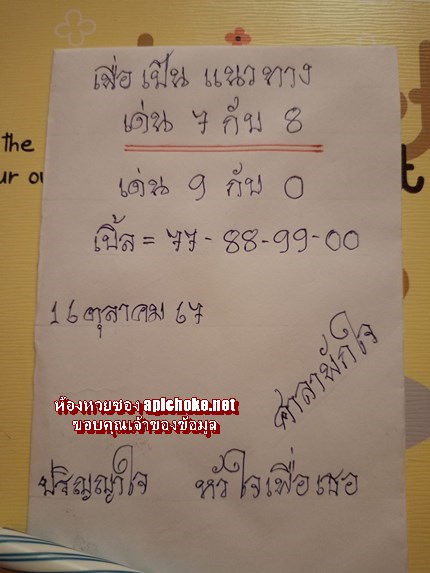 เพื่อเป็นแนวทาง
เด่น 7 กับ 8
the
ur ou
t
เด่น 9 กับ 0
เบิ้ล = 77-88-99-00
16 ตุลาคม 67
ศาลาพักใจ
ห้องหวยซอง apichoke.net
ขอบคุณเจ้าของข้อมูล
ปริญญาใจ หัวใจเพื่อเธอ